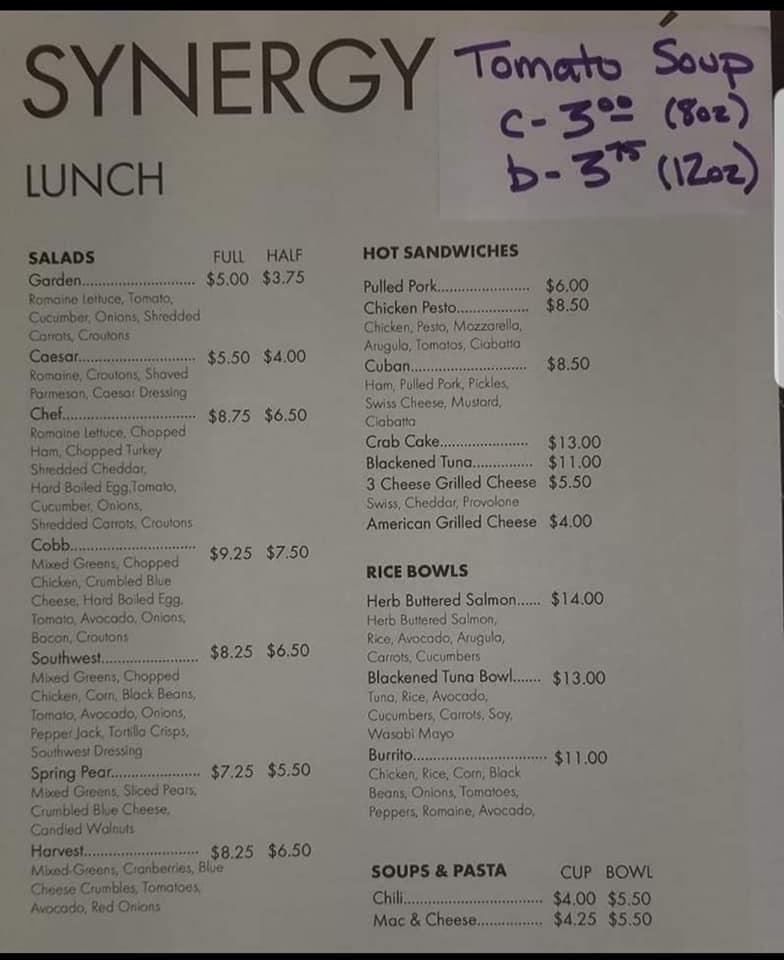 SYNERGY
Tomato Soup
c- 3.00 (8oz)
b- 3.75 (12oz)
LUNCH
SALADS FULL HALF
Garden............................ $5.00 $3.75
Romaine Lettuce, Tomato,
Cucumber, Onions, Shredded
Carrots, Croutons
Caesar............................. $5.50 $4.00
Romaine, Croutons, Shaved
Parmesan, Caesar Dressing
Chef................................. $8.75 $6.50
Romaine Lettuce, Chopped
Ham, Chopped Turkey
Shredded Cheddar,
Hard Boiled Egg,Tomato,
Cucumber, Onions,
Shredded Carrots, Croutons
Cobb............................... $9.25 $7.50
Mixed Greens, Chopped
Chicken, Crumbled Blue
Cheese, Hard Boiled Egg,
Tomato, Avocado, Onions,
Bacon, Croutons
Southwest........................ $8.25 $6.50
Mixed Greens, Chopped
Chicken, Corn, Black Beans,
Tomato, Avocado, Onions,
Pepper Jack, Tortilla Crisps,
Southwest Dressing
Spring Pear...................... $7.25 $5.50
Mixed Greens, Sliced Pears,
Crumbled Blue Cheese,
Candied Walnuts
Harvest............................ $8.25 $6.50
Mixed Greens, Cranberries, Blue
Cheese Crumbles, Tomatoes,
Avocado, Red Onions
HOT SANDWICHES
Pulled Pork....................... $6.00
Chicken Pesto.................. $8.50
Chicken, Pesto, Mozzarella,
Arugula, Tomatos, Ciabatta
Cuban............................. $8.50
Ham, Pulled Pork, Pickles,
Swiss Cheese, Mustard,
Ciabatta
Crab Cake...................... $13.00
Blackened Tuna............... $11.00
3 Cheese Grilled Cheese $5.50
Swiss, Cheddar, Provolone
American Grilled Cheese $4.00
RICE BOWLS
Herb Buttered Salmon...... $14.00
Herb Buttered Salmon,
Rice, Avocado, Arugula,
Carrots, Cucumbers
Blackened Tuna Bowl....... $13.00
Tuna, Rice, Avocado,
Cucumbers, Carrots, Soy,
Wasabi Mayo
Burrito................................. $11.00
Chicken, Rice, Corn, Black
Beans, Onions, Tomatoes,
Peppers, Romaine, Avocado,
SOUPS & PASTA CUP BOWL
Chili................................... $4.00 $5.50
Mac & Cheese................ $4.25 $5.50